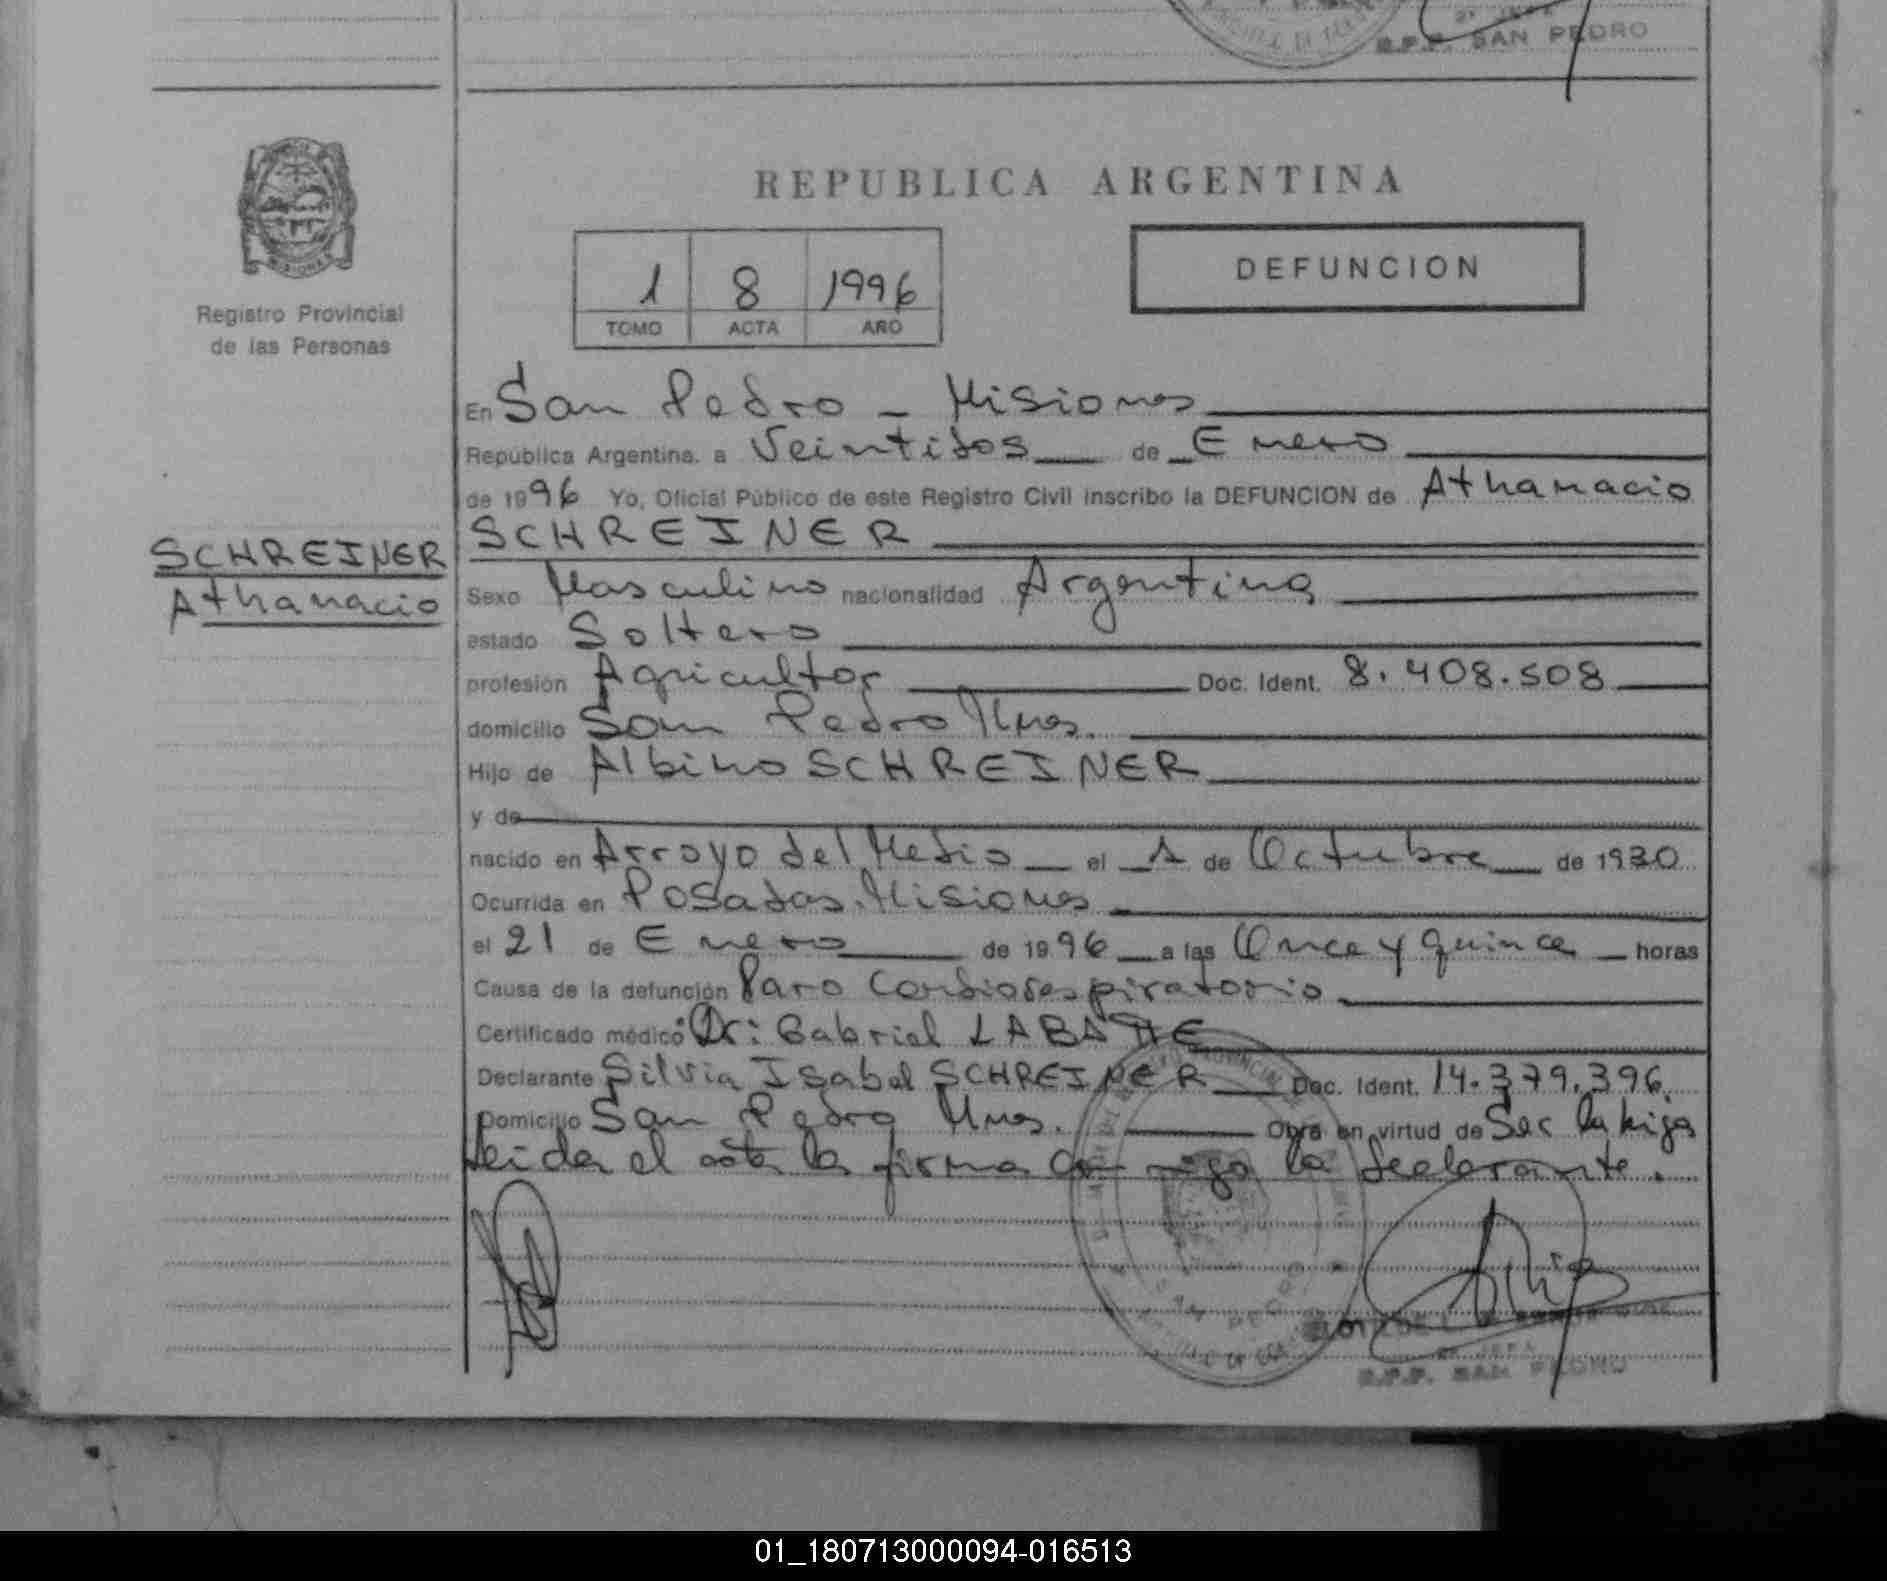 2º JEFE
R.P.P. SAN PEDRO
MISIONES
Registro Provincial
de las Personas
REPUBLICA ARGENTINA
DEFUNCION
1 8 1996
TOMO ACTA AÑO
En San Pedro - Misiones
República Argentina. a Veintidos de Enero
de 1996 Yo, Oficial Público de este Registro Civil inscribo la DEFUNCION de Athanacio
SCHREINER
SCHREINER
Athanacio
Sexo Masculino nacionalidad Argentina
estado Soltero
profesión Agricultor Doc. Ident. 8.408.508
domicilio San Pedro Mnes.
Hijo de Albino SCHREINER
y de
nacido en Arroyo del Medio el 1 de Octubre de 1930
Ocurrida en Posadas. Misiones
el 21 de Enero de 1996 a las Once y quince horas
Causa de la defunción Paro Cardiorespiratorio
Certificado médico Dr: Gabriel LABATHE
Declarante Silvia Isabel SCHREINER Doc. Ident. 14.379.396
Domicilio San Pedro Mnes. Obra en virtud de Ser la hija
Leida el acta la firma conmigo la declarante.
SAN PEDRO
R.P.P. SAN PEDRO
01_180713000094-016513